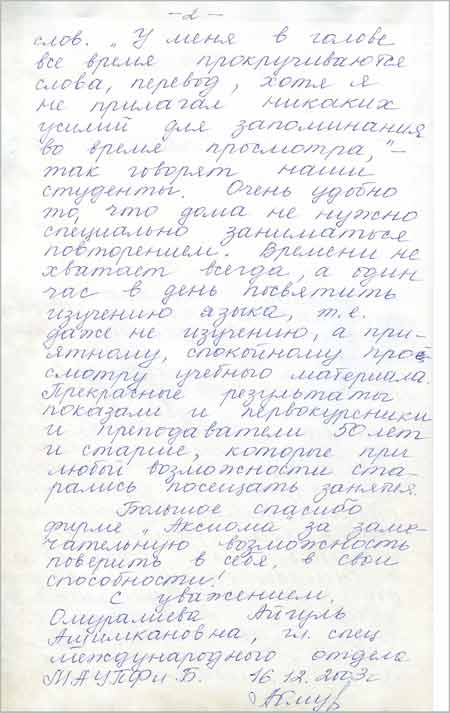 - 2 -
слов. „У меня в голове
все время прокручиваются
слова, перевод, хотя я
не прилагал никаких
усилий для запоминания
во время просмотра,"-
так говорят наши
студенты. Очень удобно
то, что дома не нужно
специально заниматься
повторением. Времени не
хватает всегда, а один
час в день посвятить
изучению языка, т.е.
даже не изучению, а при-
ятному, спокойному про-
смотру учебного материала.
Прекрасные результаты
показали и первокурсники
и преподаватели 50 лет
и старше, которые при
любой возможности ста-
рались посещать занятия.
Большое спасибо
фирме „Аксиома" за заме-
чательную возможность
поверить в себя, в свои
способности!
С уважением,
Омуралиева Айгуль
Ашимкановна, гл. спец
международного отдела
МАУПФиБ. 16.12.2003г.